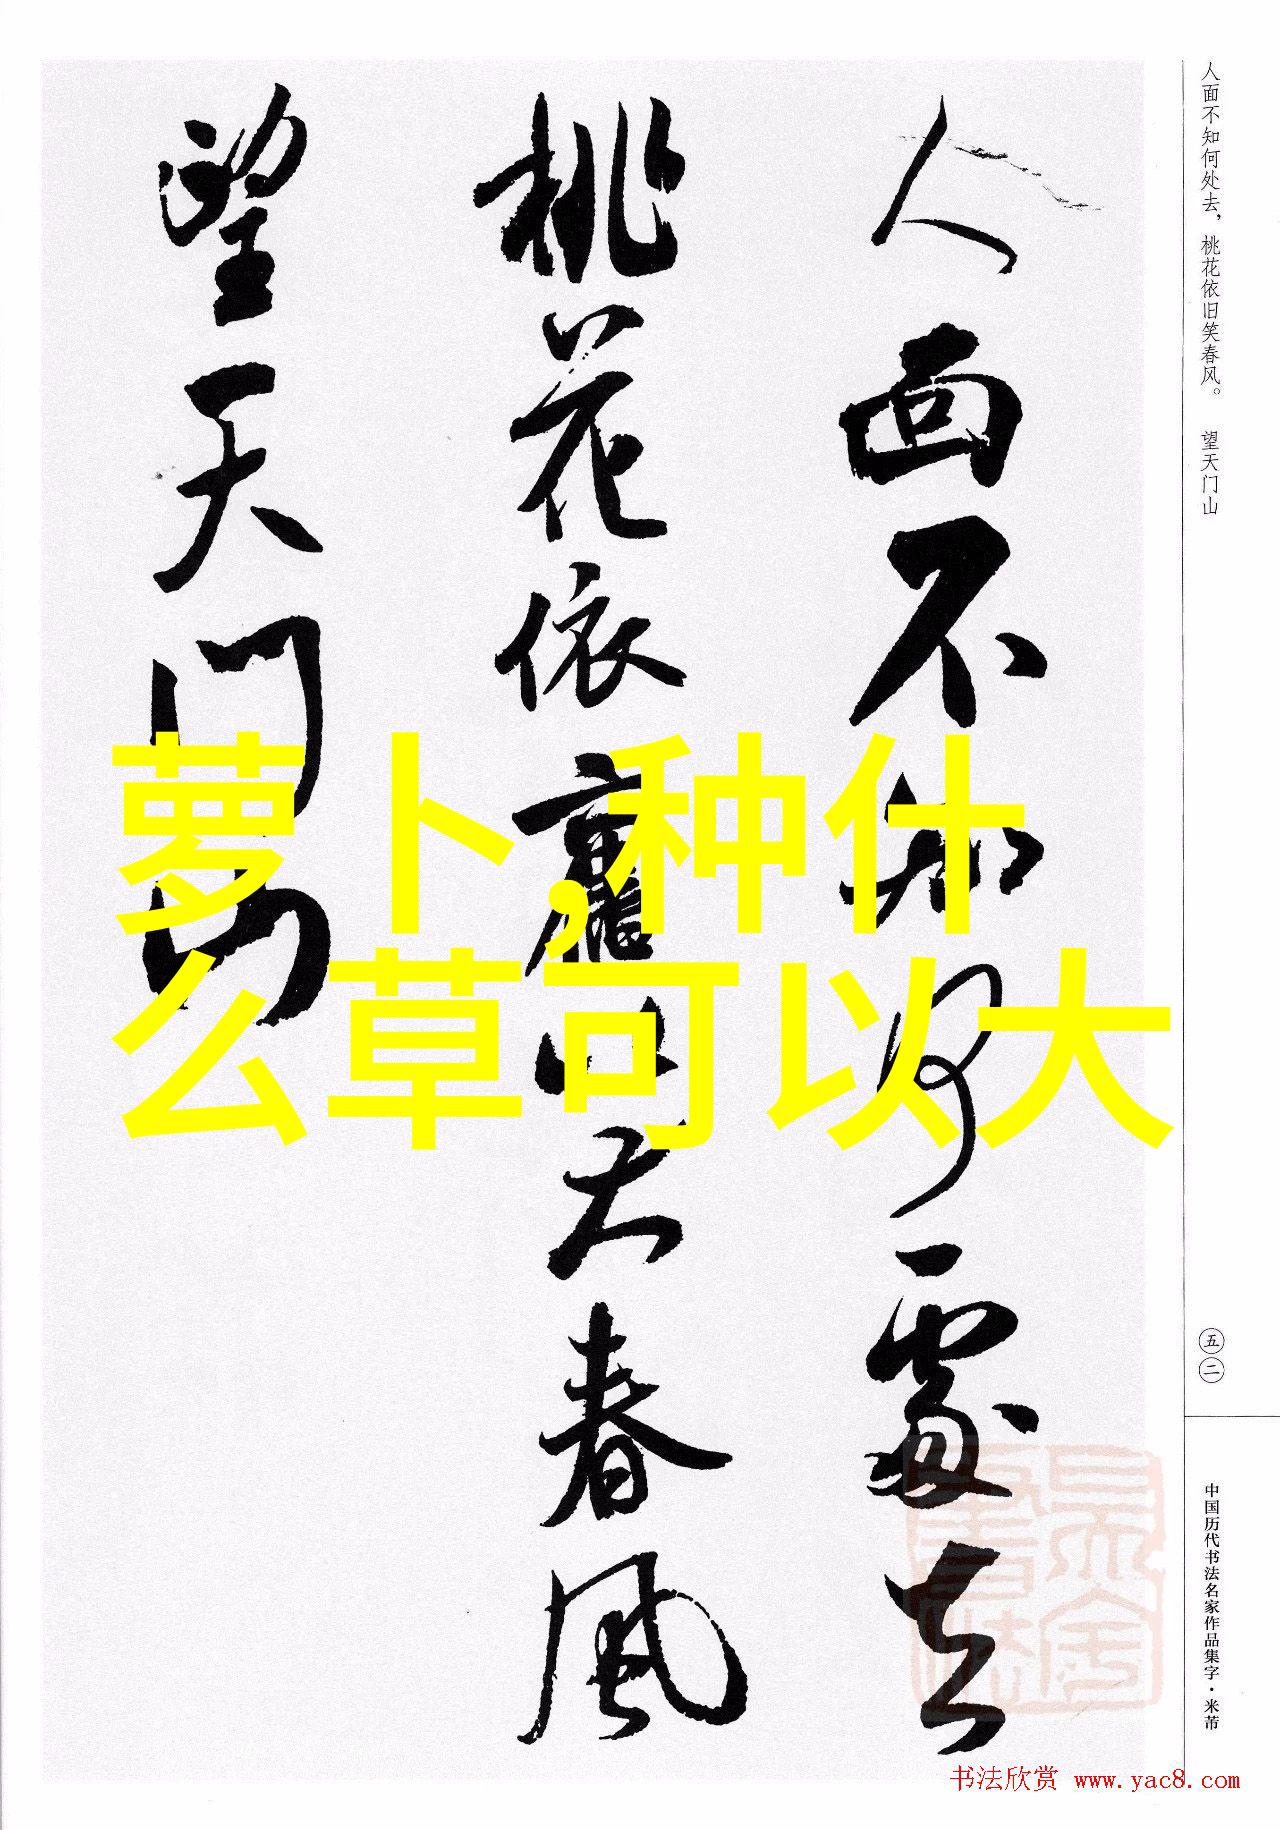 人面不知何处去，桃花依旧笑春风。 望天门山
人面不知何處去
桃花依舊笑春風
望天门山
萝卜,种什
么草可以大
五二
中国历代书法名家作品集字·米芾
书法欣赏 www.yac8.com